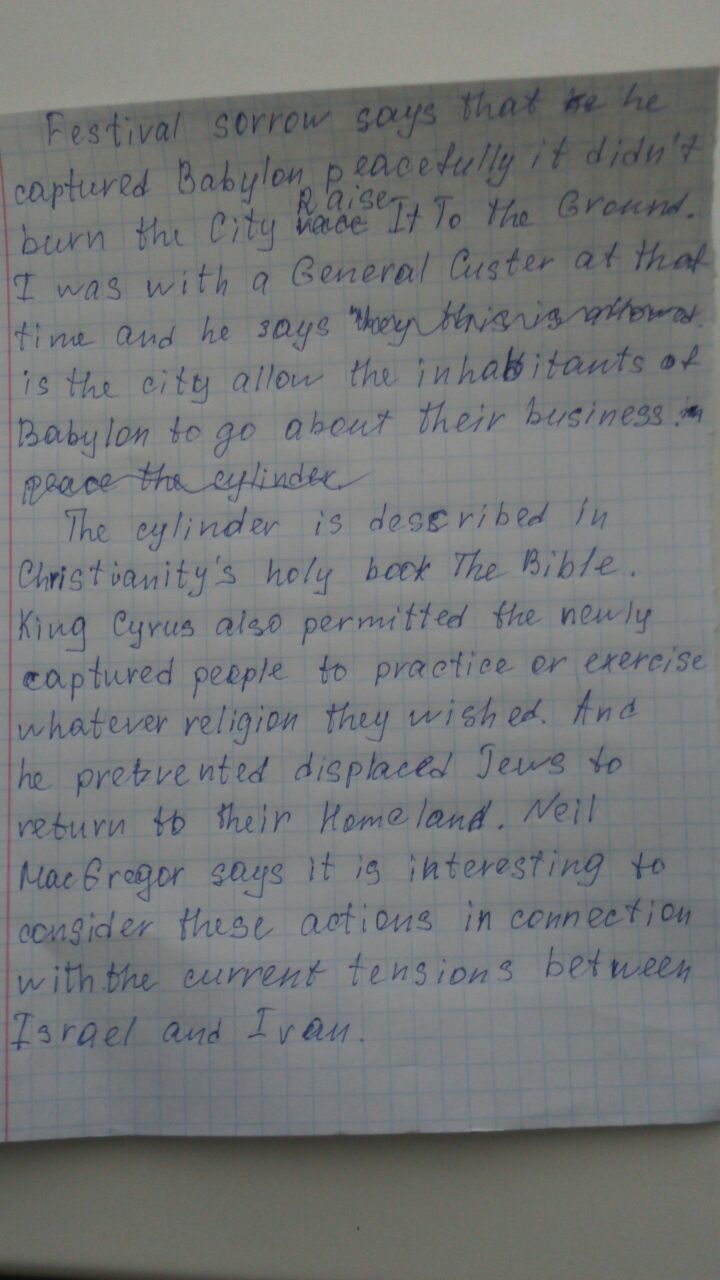 Festival sorrow says that he he
captured Babylon peacefully it didn't
Raise
burn the City race It To the Ground.
I was with a General Custer at that
time and he says they this is allowed.
is the city allow the inhabitants of
Babylon to go about their business. in
peace the cylinder
The cylinder is described in
Christianity's holy book The Bible.
King Cyrus also permitted the newly
captured people to practice or exercise
whatever religion they wished. And
he pretvented displaced Jews to
return to their Homeland. Neil
MacGregor says it is interesting to
consider these actions in connection
with the current tensions between
Israel and Iran.